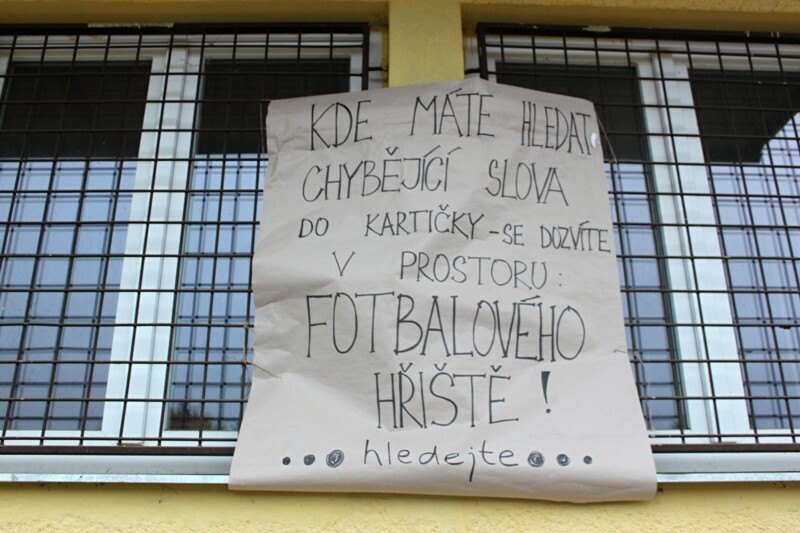 KDE MÁTE HLEDAT
CHYBĚJÍCÍ SLOVA
DO KARTIČKY - SE DOZVÍTE
V PROSTORU:
FOTBALOVÉHO
HŘIŠTĚ!
...hledejte...